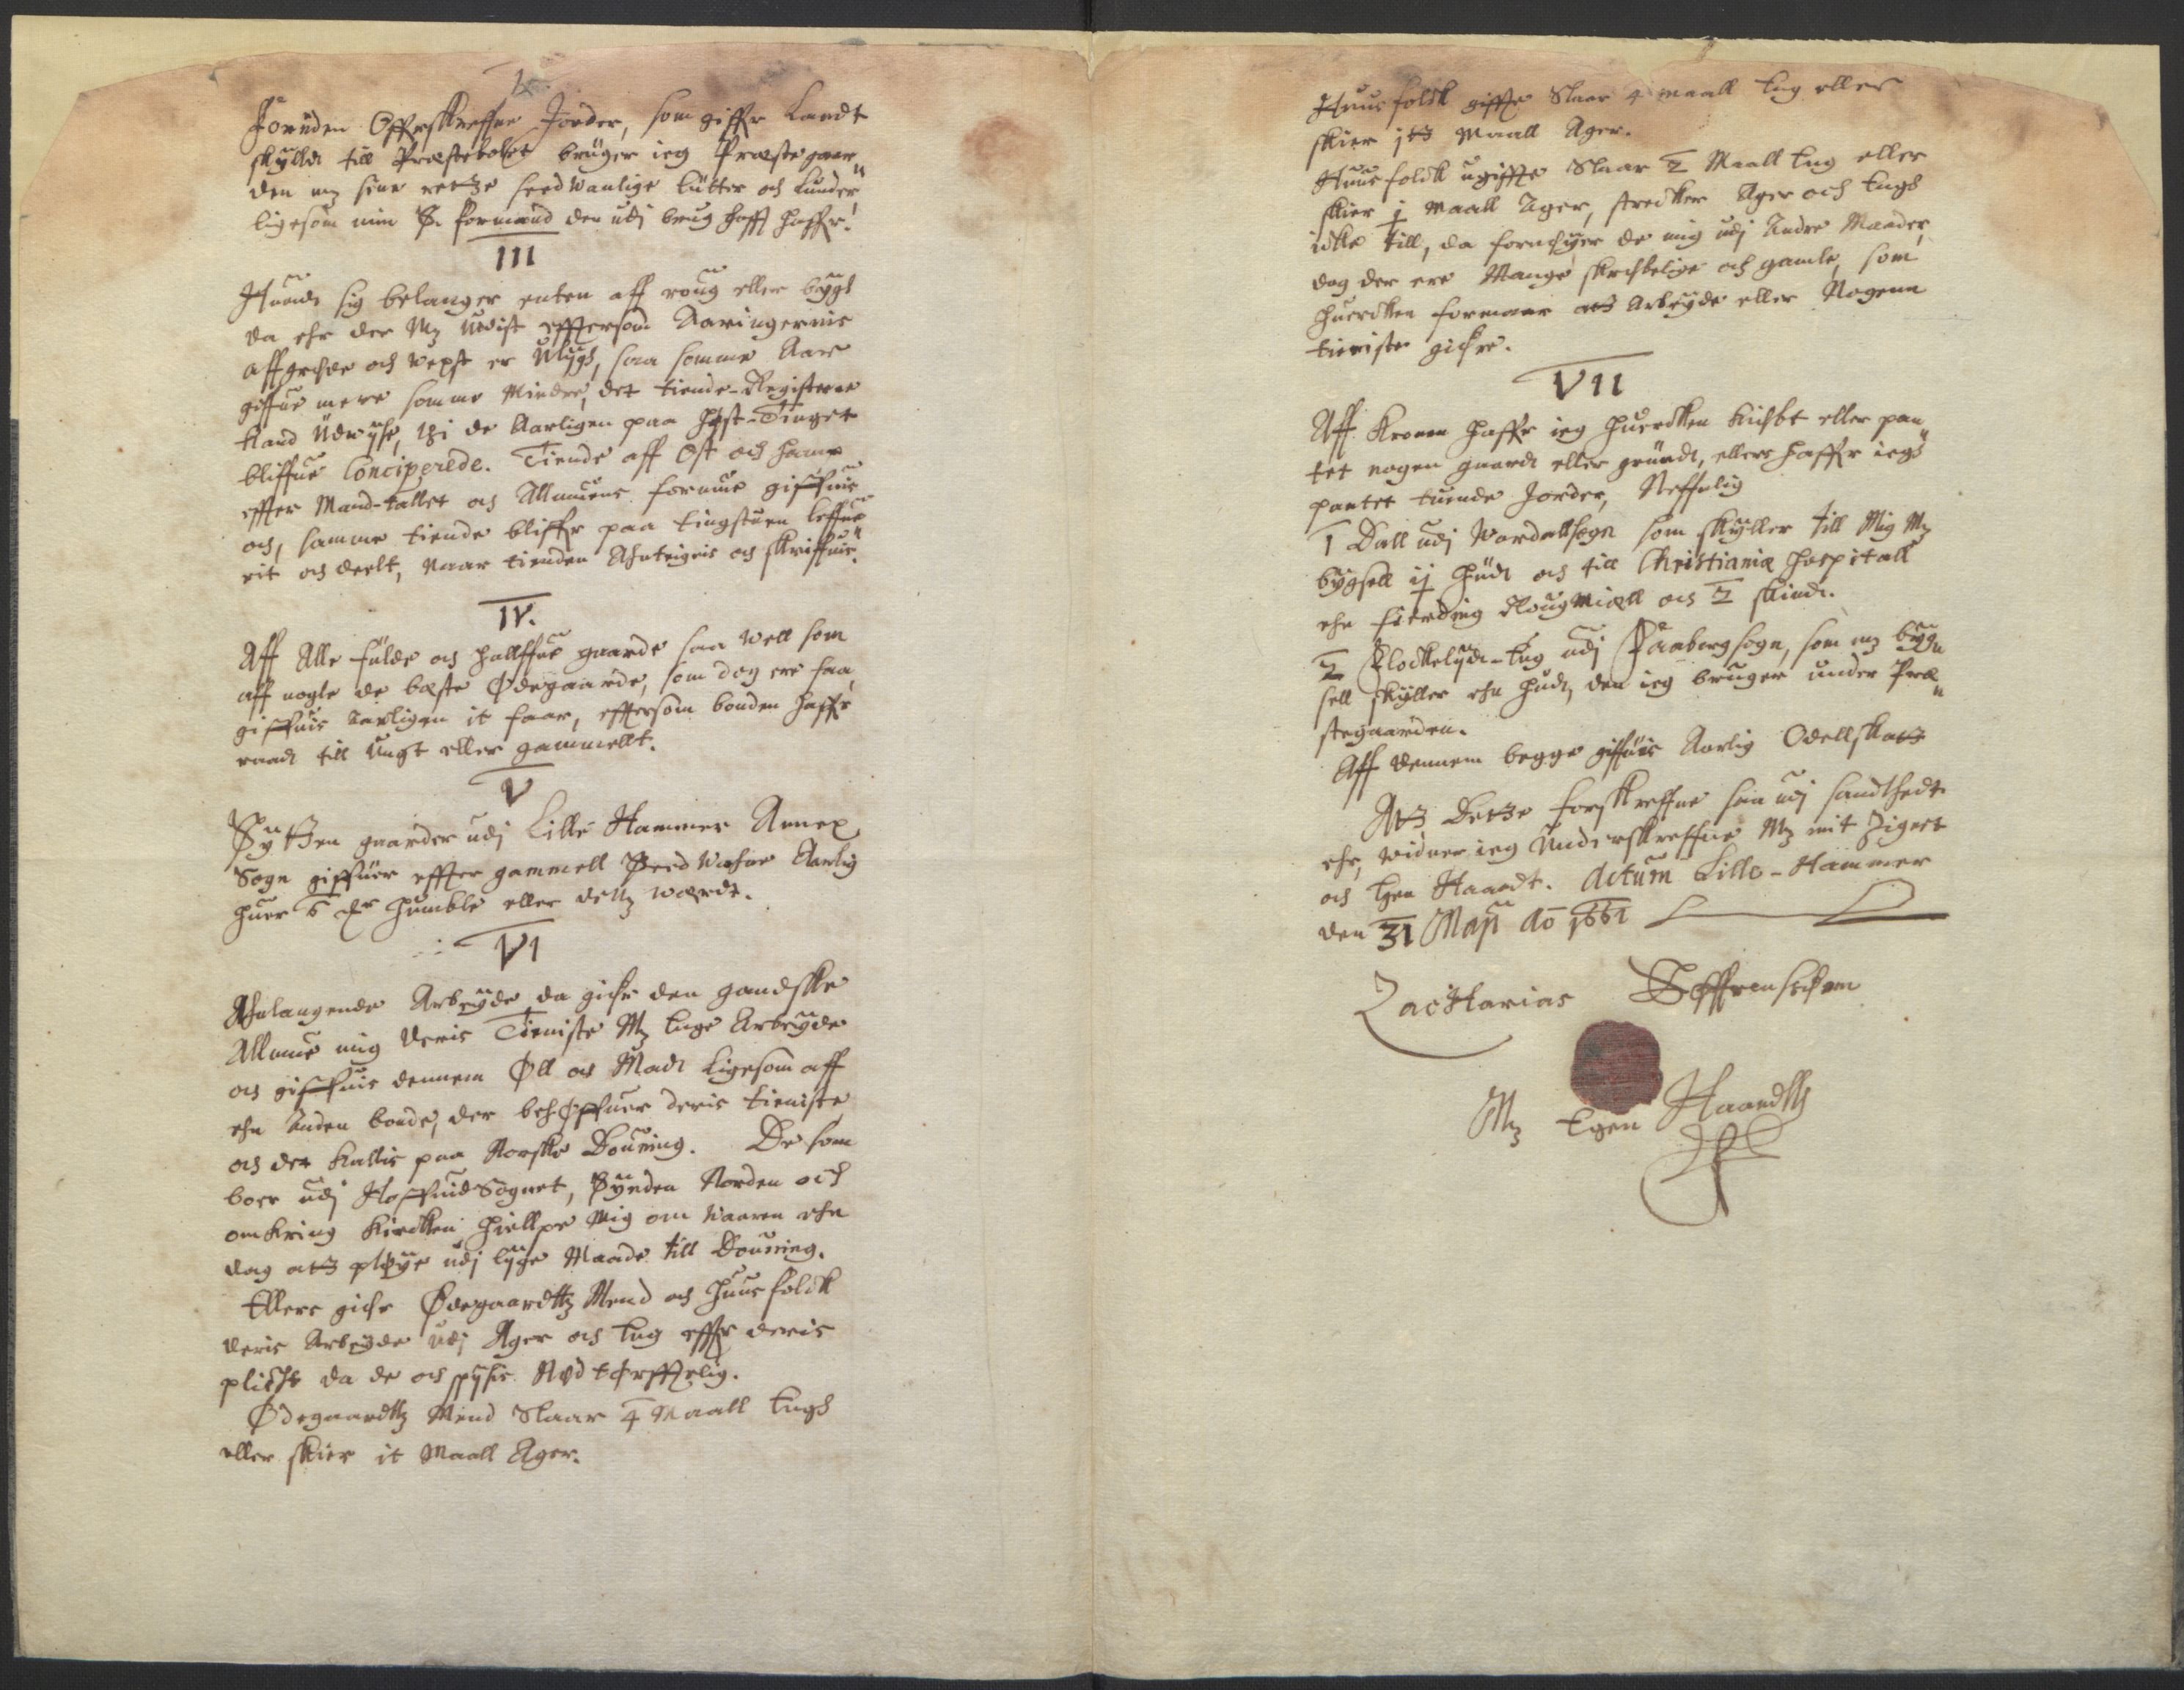 Foruden Offuerskreffne Jorder, som giffer Landt
skyldt till Præstebolet bruger ieg Præstegaar
den mz sine rettze seeduanlige lutter och lunder
ligesom min S. formand den udj brug hafft haffr.
III
Huadt sig belanger enten aff roug eller bygh
da ehr der Mz uvist efftersom Aaringernis
affgrøde och vext er Ulygh, saa somme Aar
giffue mere somme Mindre, det tiende-Registerne
kand Udvyse, thi de Aarligen paa Høst-Tinget
bliffue Conciperede. Tiende aff Ost och hamp
effter Mand-tallet och Allmuens formue giffuis
och, samme tiende bliffr paa tingstuen leffue
rit och deelt, naar tienden Anteignis och skriffuis.
IV.
Aff Alle fulde och hallffue gaarde saa well som
aff nogle de bæste Ødegaarde, som dog ere faa,
giffuis Aarligen it faar, efftersom bonden haffr
raadt till Ungt eller gammellt.
V
Sytten gaarder udj Lille Hammer Annex
Sogn giffuer effter gammell Seedvahne Aarlig
huer 6 Humble eller dets værdt.
VI
Anlangende Arbeyde da giøre den gandske
Allmue mig deris Tieniste Mz Engs Arbeyde
och giffuis dennem Øll och Madt ligesom aff
ehn Anden bonde, der behøffuer deris tieniste
och det kallis paa Norske Douning. De som
boer udj Hoffuid Sognet, Synden Norden och
omkring Kircken hielper Mig om Vaaren ehn
dag att pløye udj lyge Maade till Douning.
Ellers giøre Ødegaardtz Mend och Huusfolck
deris Arbeyde udj Ager och Eng effter deris
plicht da de och spysis Nødtørfftelig.
Ødegaardtz Mend Slaar 4 Maall Engh
eller skier it Maall Ager.
Huusfolck giffte Slaar 4 maall Eng eller
skier itt Maall Ager.
Huusfolck ugiffte Slaar 2 Maall Eng eller
skier j Maall Ager, strecker Ager och Engh
icke till, da fornøyer de mig udj Andre Maader,
dog der ere Mange skrøbelige och gamle, som
huercken formaar att Arbeyde eller Nogenn
tieniste giøre.
VII
Aff Kronen haffr ieg huercken kiøbt eller pan
tet nogen gaardt eller grundt, ellers haffr iegh
pantet tuende Jorder, Neffnlig
1 Dall udj Vardallsogn som skyller till Mig Mz
bygsell ij hudt och till Christianiæ Hospitall
ehn fierding Rougmiæll och 2 skindt.
2 Klockelydt-Eng udj Faaberg sogn, som mz byg
sell skyller ehn hudt, den ieg bruger under Præ
stegaarden.
Aff dennem begge giffuis Aarlig Odellskatt
Att Dette forskreffne saa udj sandthedt
ehr, vidner ieg Underskreffne Mz mit Zignet
och Egen Haandt. Actum Lille-Hammer
den 31 Maji Ao 1661
Zacharias Søffrensøhnn
Mz Egen Haandtz